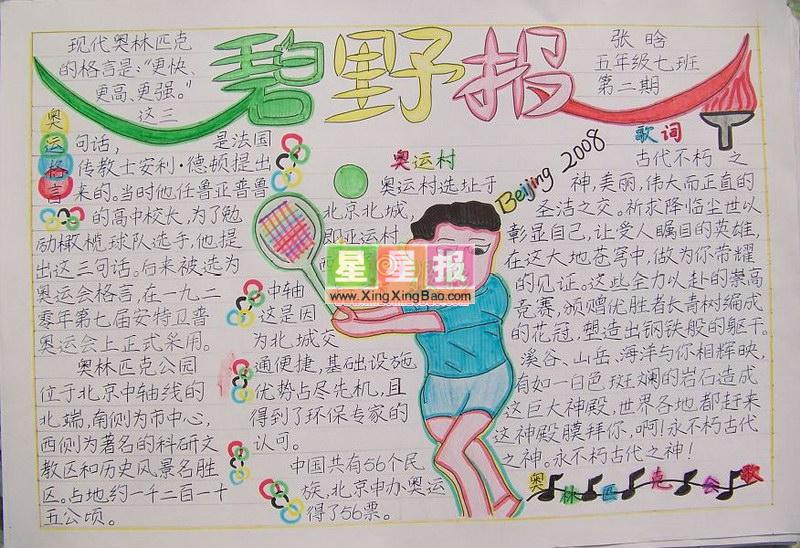 碧野报
张晗
五年级七班
第二期
现代奥林匹克
的格言是:“更快、
更高、更强。”
这三
奥运格言
句话,是法国
传教士安利·德顿提出
来的。当时他任鲁亚普鲁
的高中校长,为了勉
励橄榄球队选手,他提
出这三句话。后来被选为
奥运会格言,在一九二
零年第七届安特卫普
奥运会上正式采用。
奥林匹克公园
位于北京中轴线的
北端,南侧为市中心,
西侧为著名的科研文
教区和历史风景名胜
区。占地约一千二百一十
五公顷。
奥运村
奥运村选址于
北京北城,
即亚运村
中轴
这是因
为北城交
通便捷,基础设施
优势占尽先机,且
得到了环保专家的
认可。
中国共有56个民
族,北京申办奥运
得了56票。
Beijing 2008
星星报
www.XingXingBao.com
歌词
古代不朽之
神,美丽,伟大而正直的
圣洁之父。祈求降临尘世以
彰显自己,让受人瞩目的英雄,
在这大地苍穹中,做为你荣耀
的见证。这些全力以赴的崇高
竞赛,颁赠优胜者长青树编成
的花冠,塑造出钢铁般的躯干。
溪谷、山岳、海洋与你相辉映,
有如一白色斑斓的岩石造成
这巨大神殿,世界各地都赶来
这神殿膜拜你,啊!永不朽古代
之神。永不朽古代之神!
奥林匹克会歌